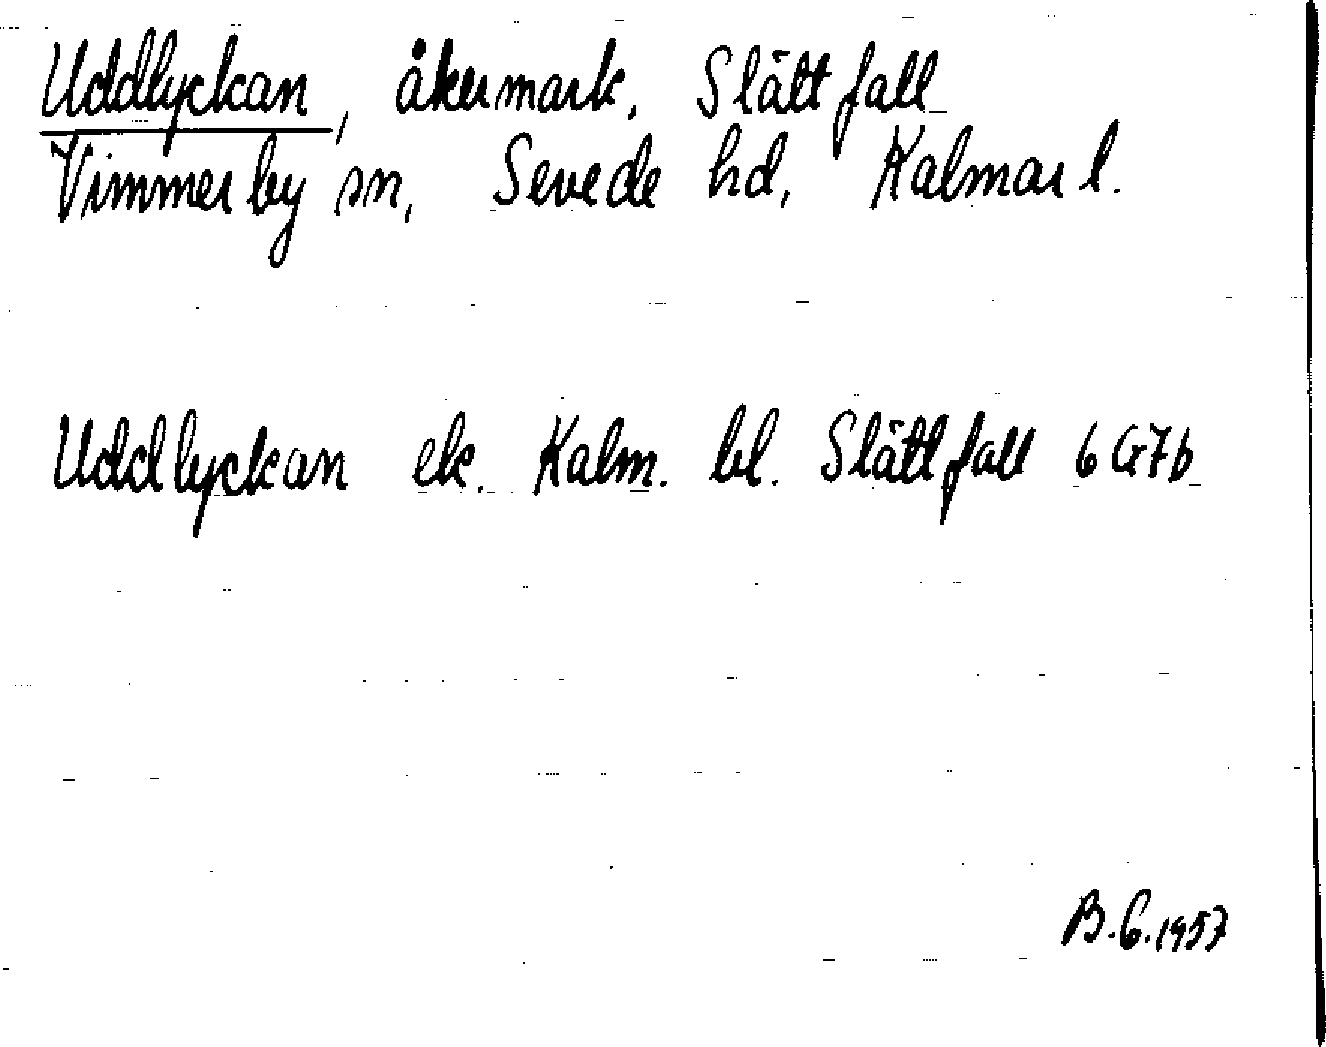 Uddlyckan, åkermark, Slättfall
Vimmerby sn, Sevede hd, Kalmar l.
Uddlyckan ek. Kalm. bl. Slättfall 6 G7b
B.G. 1957